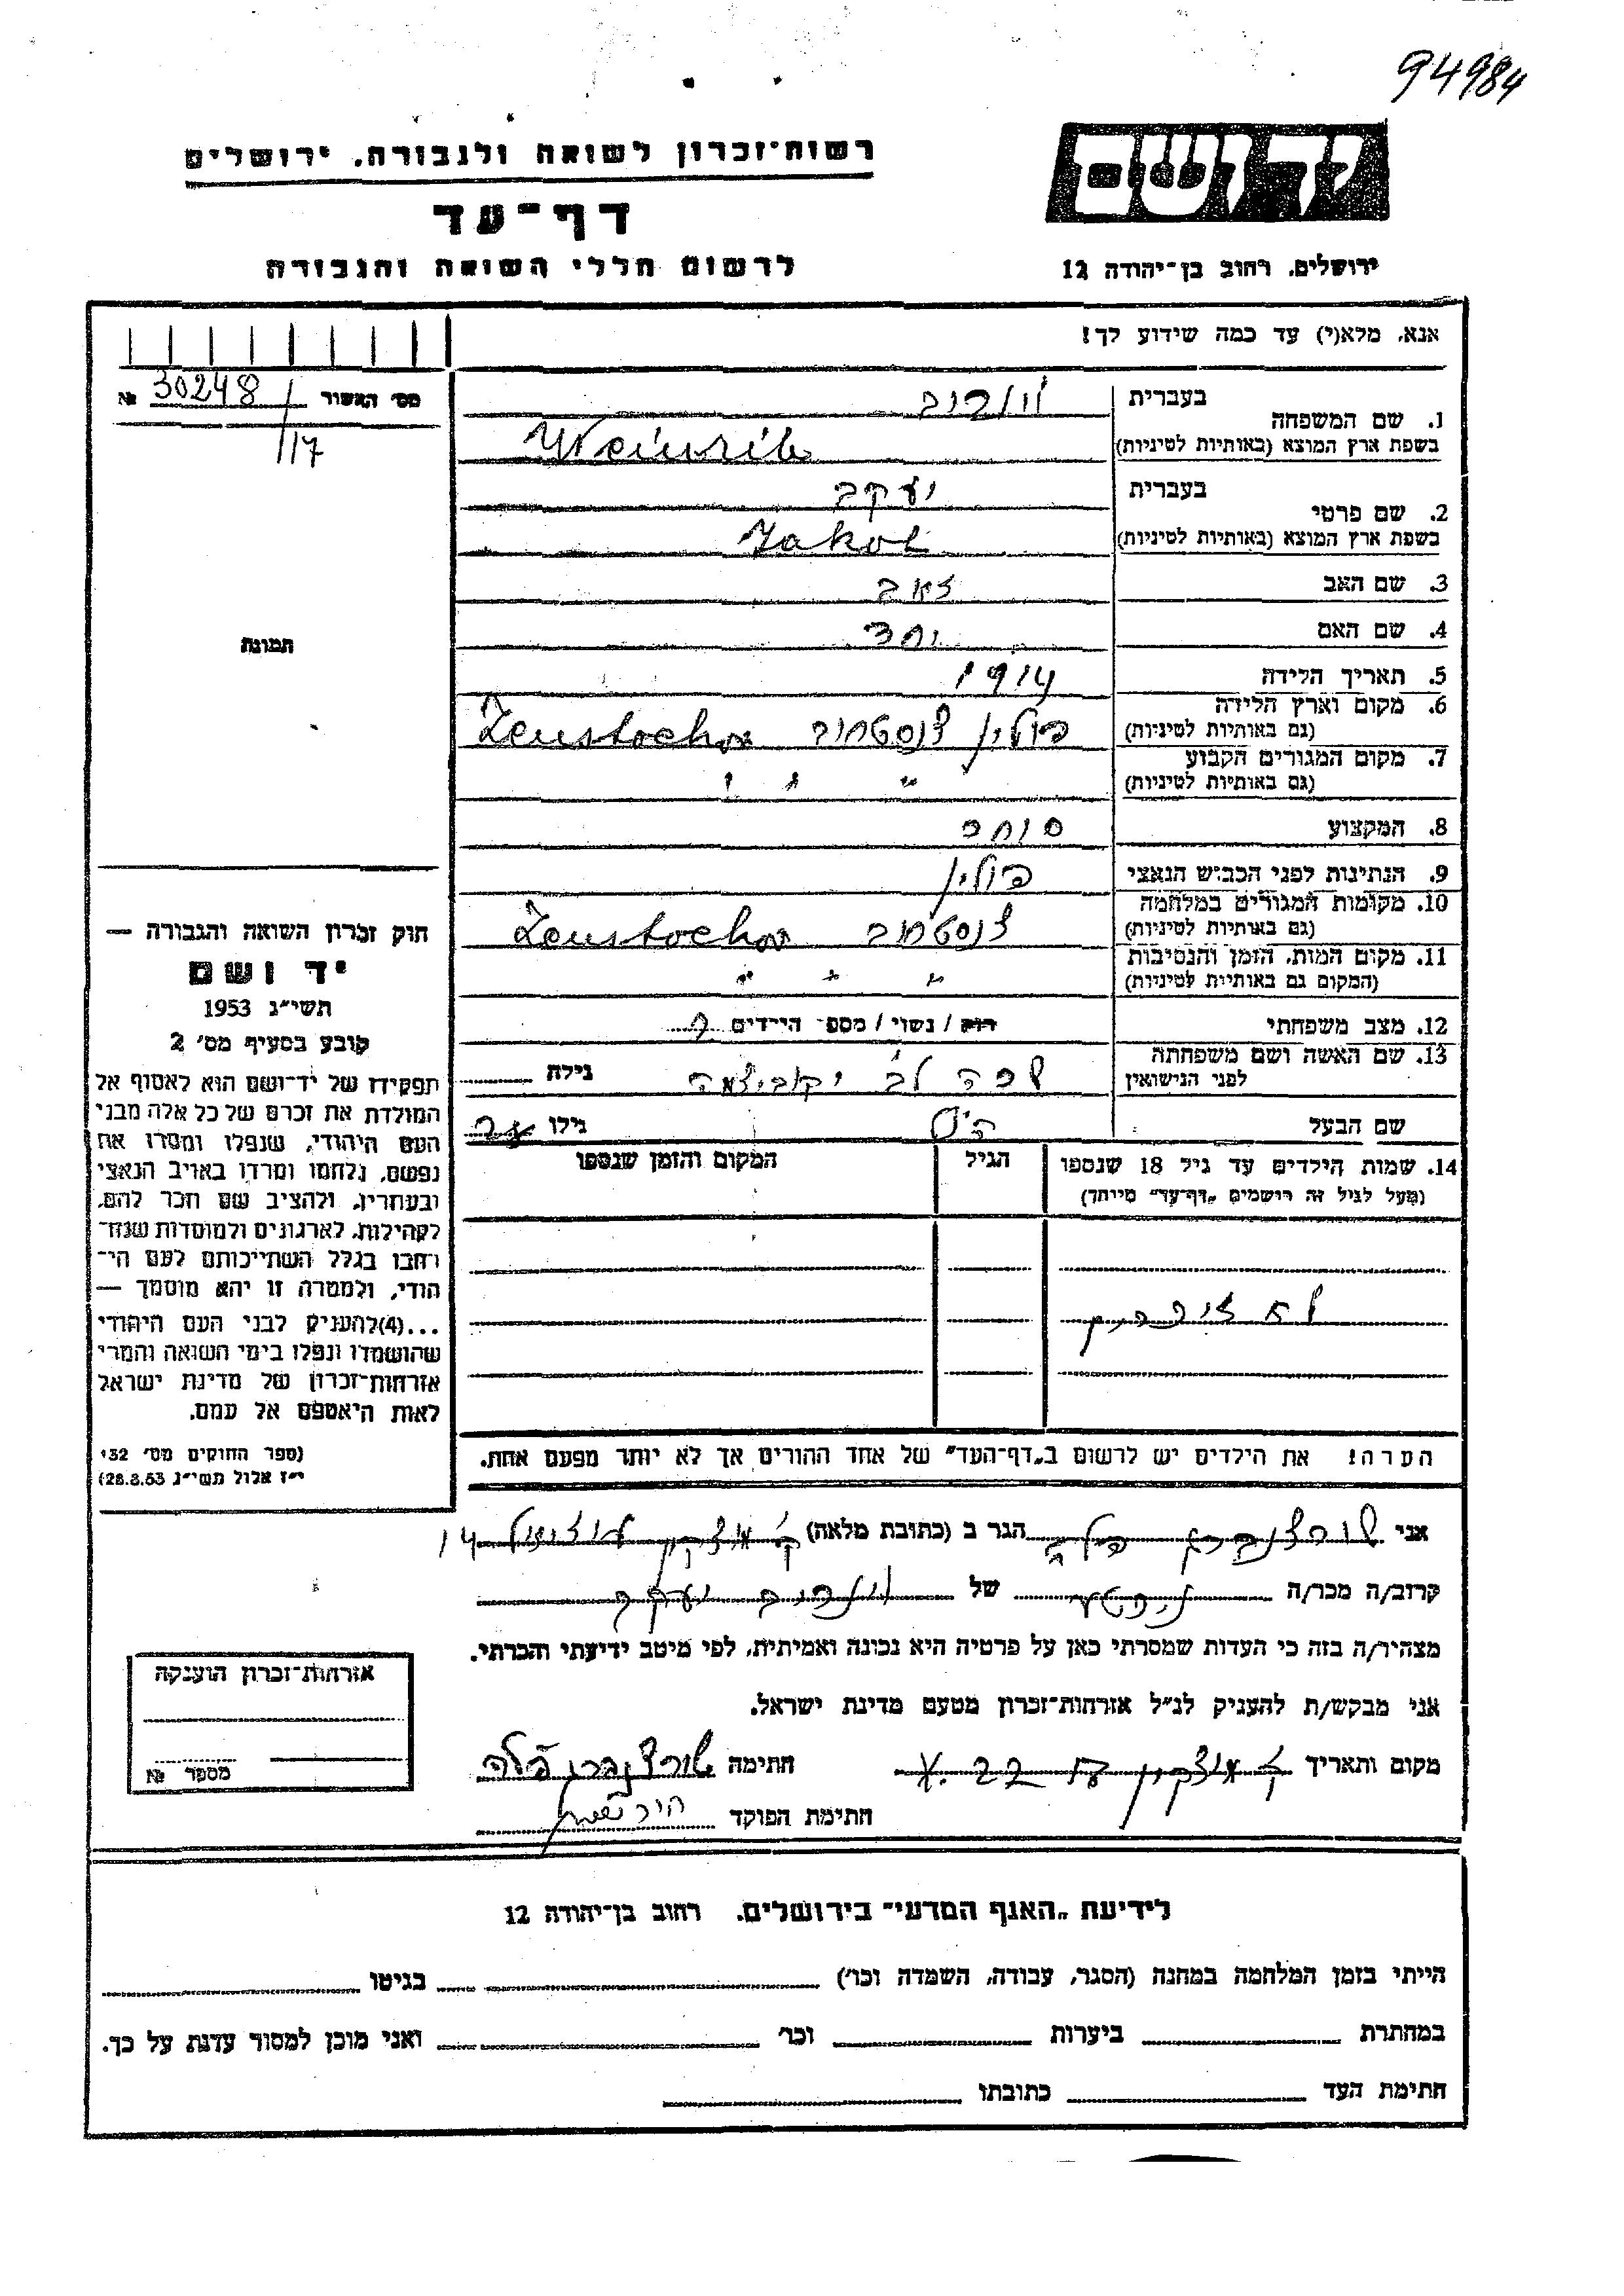 94984
רשות-זכרון לשואה ולגבורה, ירושלים
דף-עד
לרשום חללי השואה והגבורה
ושם
ירושלים, רחוב בן-יהודה 12
אנא, מלא(י) עד כמה שידוע לך!
מס' האשור № 30248
/117
1. שם המשפחה
בעברית
בשפת ארץ המוצא (באותיות לטיניות) Weinrib
2. שם פרטי
בעברית יעקב
בשפת ארץ המוצא (באותיות לטיניות) Jakob
3. שם האב זאב
4. שם האם
5. תאריך הלידה 1914
6. מקום וארץ הלידה (גם באותיות לטיניות) פולין צנסטחוב Zenstochov
7. מקום המגורים הקבוע (גם באותיות לטיניות) " " "
8. המקצוע סוחר
9. הנתינות לפני הכבוש הנאצי פולין
10. מקומות המגורים במלחמה (גם באותיות לטיניות) צנסטחוב Zenstochov
11. מקום המות, הזמן והנסיבות (המקום גם באותיות לטיניות) " " "
12. מצב משפחתי רוק / נשוי / מספ' הילדים
13. שם האשה ושם משפחתה לפני הנישואין
גילה
שם הבעל
גילו
14. שמות הילדים עד גיל 18 שנספו
(מעל לגיל זה רושמים "דף-עד" מיוחד)
הגיל
המקום והזמן שנספו
לא
הערה! את הילדים יש לרשום ב"דף-העד" של אחד ההורים אך לא יותר מפעם אחת.
תמונה
חוק זכרון השואה והגבורה —
יד ושם
תשי"ג 1953
קובע בסעיף מס' 2
תפקידו של יד-ושם הוא לאסוף אל
המולדת את זכרם של כל אלה מבני
העם היהודי, שנפלו ומסרו את
נפשם, נלחמו ומרדו באויב הנאצי
ובעוזריו, ולהציב שם וזכר להם,
לקהילות, לארגונים ולמוסדות שנח-
רבו בגלל השתייכותם לעם הי-
הודי, ולמטרה זו יהא מוסמך —
...(4)להעניק לבני העם היהודי
שהושמדו ונפלו בימי השואה והמרי
אזרחות-זכרון של מדינת ישראל
לאות היאספם אל עמם.
(ספר החוקים מס' 132
י"ז אלול תשי"ג 28.8.53)
אני הגר ב (כתובת מלאה) 14
קרוב/ה מכר/ה של יעקב
מצהיר/ה בזה כי העדות שמסרתי כאן על פרטיה היא נכונה ואמיתית, לפי מיטב ידיעתי והכרתי.
אני מבקש/ת להעניק לנ"ל אזרחות-זכרון מטעם מדינת ישראל.
מקום ותאריך
חתימה
חתימת הפוקד
אזרחות-זכרון הוענקה
מספר №
לידיעת "האגף המדעי" בירושלים, רחוב בן-יהודה 12
הייתי בזמן המלחמה במחנה (הסגר, עבודה, השמדה וכו') בגיטו
במחתרת ביערות וכו' ואני מוכן למסור עדות על כך.
חתימת העד כתובתו